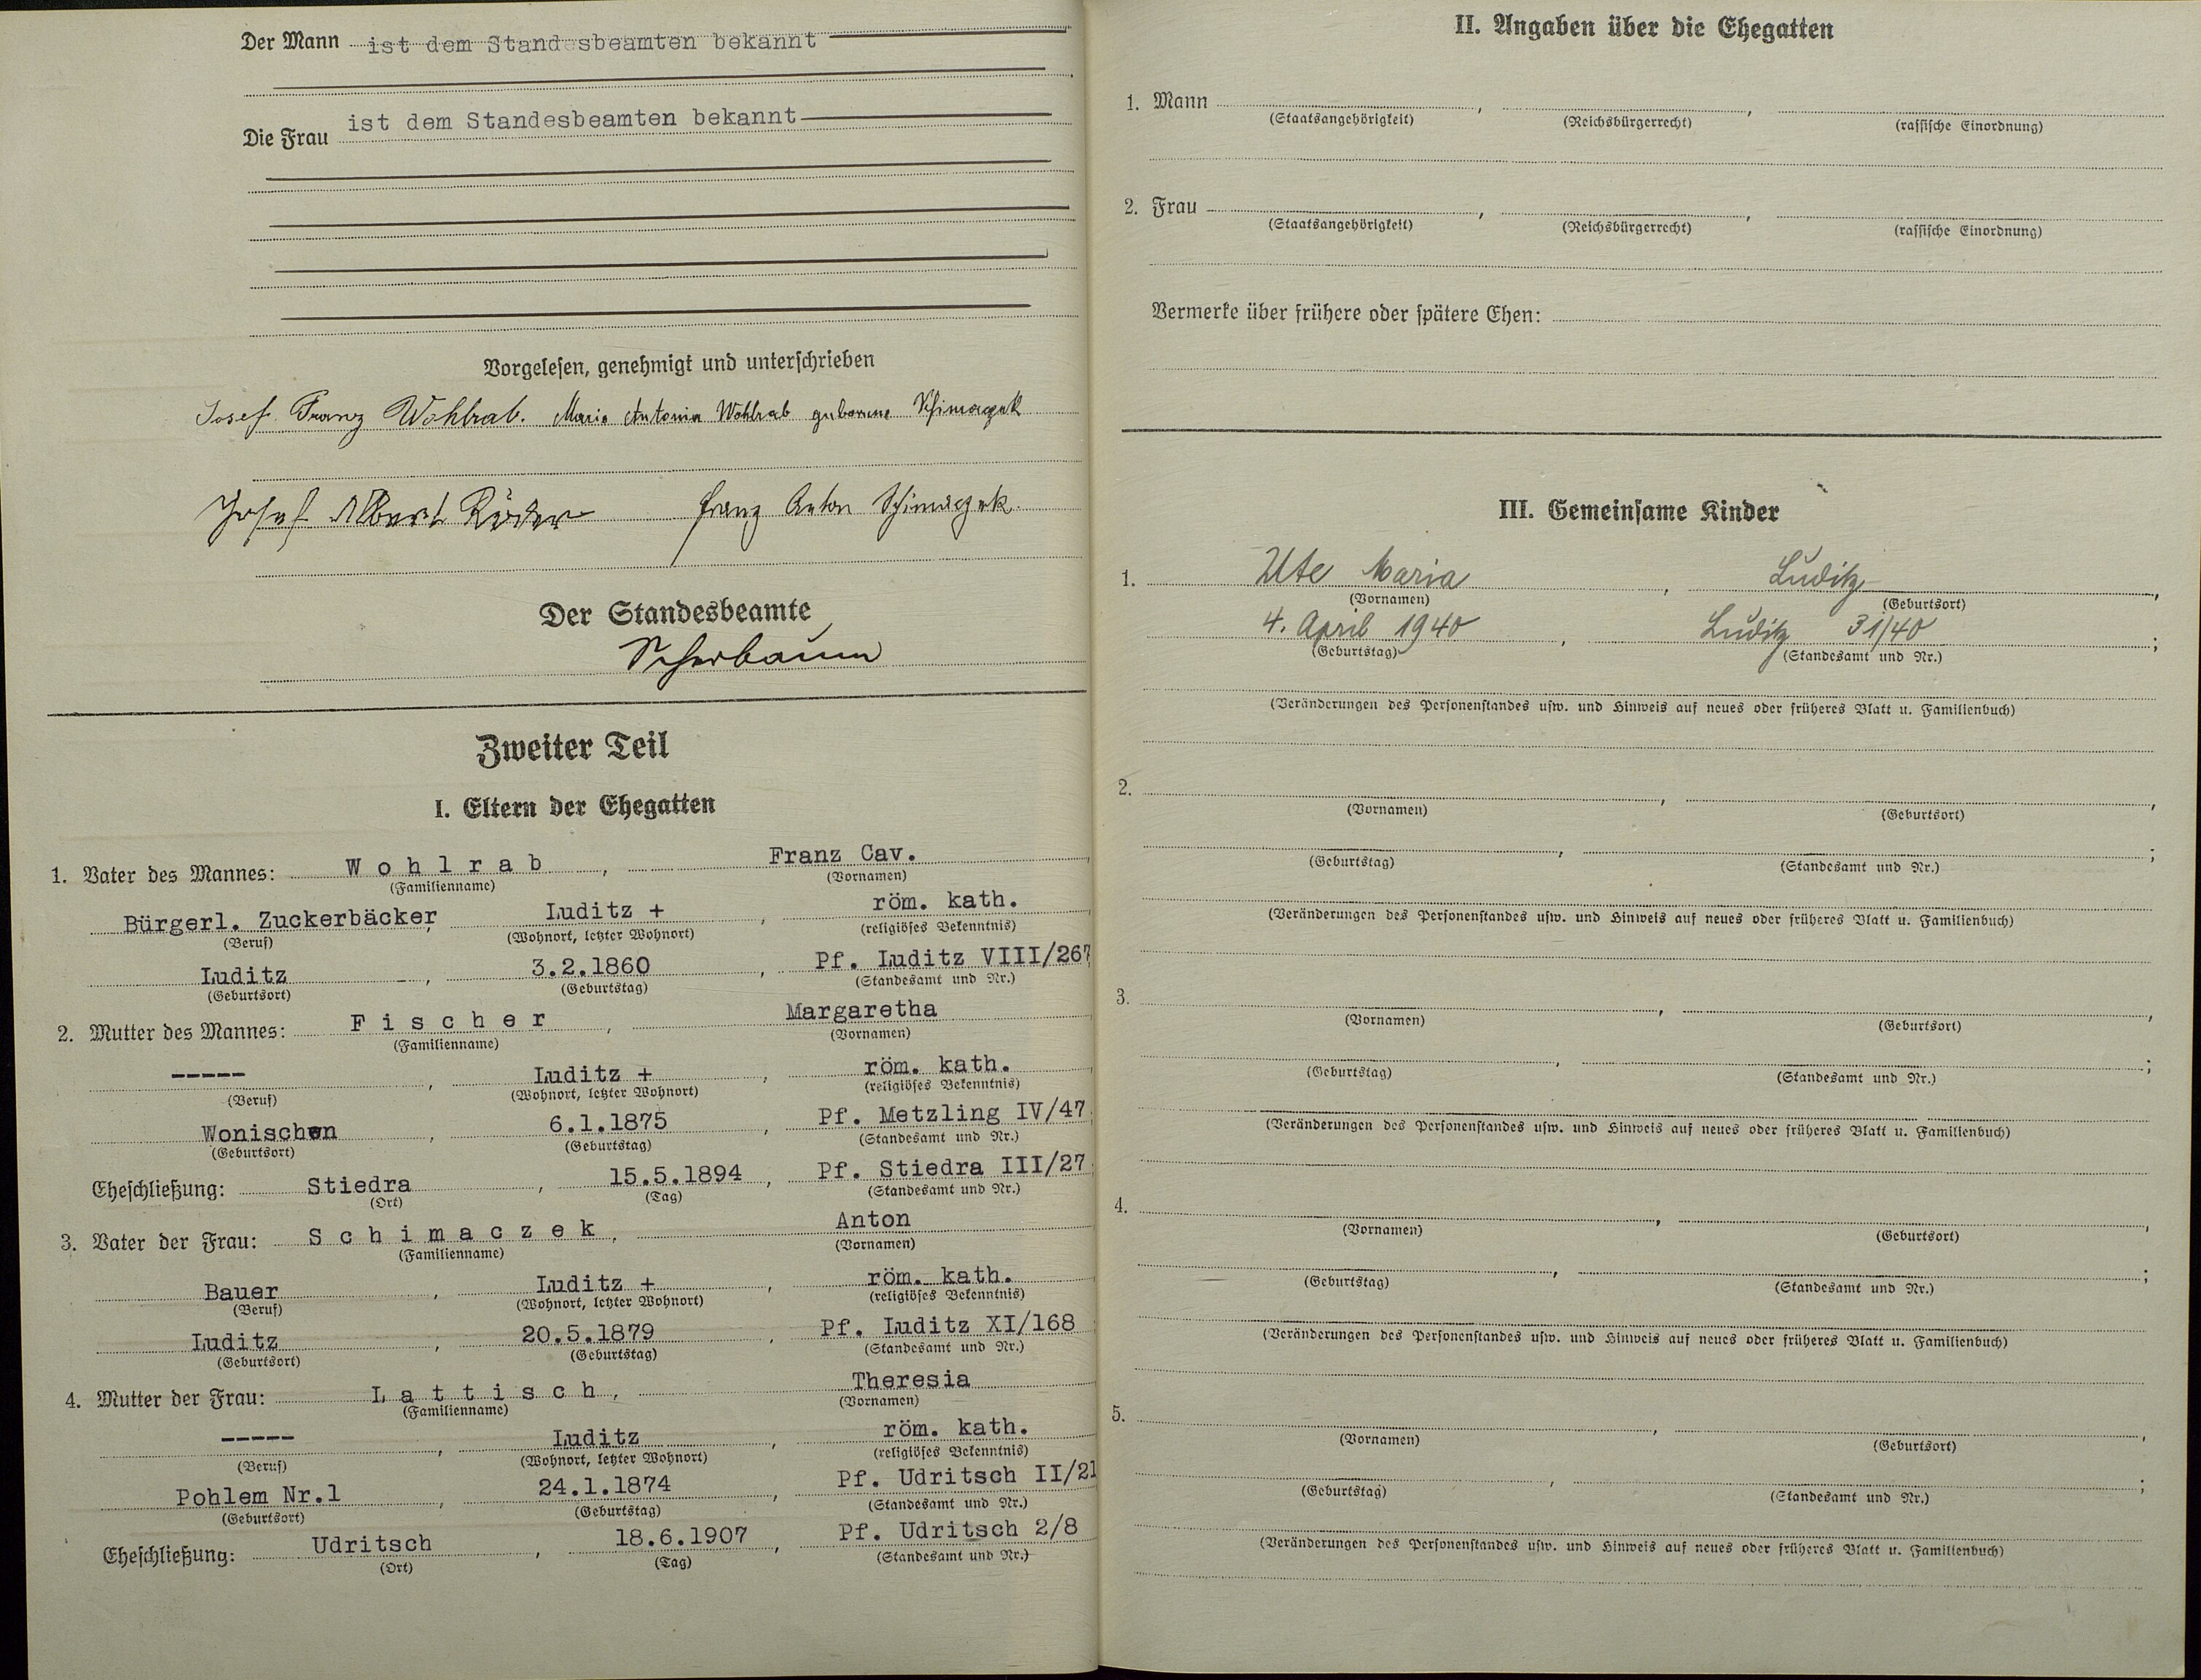 Der Mann ist dem Standesbeamten bekannt
Die Frau ist dem Standesbeamten bekannt
Vorgelesen, genehmigt und unterschrieben
Josef Franz Wohlrab. Maria Antonia Wohlrab geborene Schimaczek
Josef Albert Röder Franz Anton Schimaczek.
Der Standesbeamte
Scherbaum
Zweiter Teil
I. Eltern der Ehegatten
1. Vater des Mannes: Wohlrab, Franz Cav.
(Familienname) (Vornamen)
Bürgerl. Zuckerbäcker, Luditz +, röm. kath.
(Beruf) (Wohnort, letzter Wohnort) (religiöses Bekenntnis)
Luditz, 3.2.1860, Pf. Luditz VIII/267
(Geburtsort) (Geburtstag) (Standesamt und Nr.)
2. Mutter des Mannes: Fischer, Margaretha
(Familienname) (Vornamen)
-----, Luditz +, röm. kath.
(Beruf) (Wohnort, letzter Wohnort) (religiöses Bekenntnis)
Wonischen, 6.1.1875, Pf. Metzling IV/47
(Geburtsort) (Geburtstag) (Standesamt und Nr.)
Eheschließung: Stiedra, 15.5.1894, Pf. Stiedra III/27
(Ort) (Tag) (Standesamt und Nr.)
3. Vater der Frau: Schimaczek, Anton
(Familienname) (Vornamen)
Bauer, Luditz +, röm. kath.
(Beruf) (Wohnort, letzter Wohnort) (religiöses Bekenntnis)
Luditz, 20.5.1879, Pf. Luditz XI/168
(Geburtsort) (Geburtstag) (Standesamt und Nr.)
4. Mutter der Frau: Lattisch, Theresia
(Familienname) (Vornamen)
-----, Luditz, röm. kath.
(Beruf) (Wohnort, letzter Wohnort) (religiöses Bekenntnis)
Pohlem Nr.1, 24.1.1874, Pf. Udritsch II/21
(Geburtsort) (Geburtstag) (Standesamt und Nr.)
Eheschließung: Udritsch, 18.6.1907, Pf. Udritsch 2/8
(Ort) (Tag) (Standesamt und Nr.)
II. Angaben über die Ehegatten
1. Mann , ,
(Staatsangehörigkeit) (Reichsbürgerrecht) (rassische Einordnung)
2. Frau , ,
(Staatsangehörigkeit) (Reichsbürgerrecht) (rassische Einordnung)
Vermerke über frühere oder spätere Ehen:
III. Gemeinsame Kinder
1. Ute Maria, Luditz,
(Vornamen) (Geburtsort)
4. April 1940, Luditz 31/40;
(Geburtstag) (Standesamt und Nr.)
(Veränderungen des Personenstandes usw. und Hinweis auf neues oder früheres Blatt u. Familienbuch)
2. , ,
(Vornamen) (Geburtsort)
, ;
(Geburtstag) (Standesamt und Nr.)
(Veränderungen des Personenstandes usw. und Hinweis auf neues oder früheres Blatt u. Familienbuch)
3. , ,
(Vornamen) (Geburtsort)
, ;
(Geburtstag) (Standesamt und Nr.)
(Veränderungen des Personenstandes usw. und Hinweis auf neues oder früheres Blatt u. Familienbuch)
4. , ,
(Vornamen) (Geburtsort)
, ;
(Geburtstag) (Standesamt und Nr.)
(Veränderungen des Personenstandes usw. und Hinweis auf neues oder früheres Blatt u. Familienbuch)
5. , ,
(Vornamen) (Geburtsort)
, ;
(Geburtstag) (Standesamt und Nr.)
(Veränderungen des Personenstandes usw. und Hinweis auf neues oder früheres Blatt u. Familienbuch)